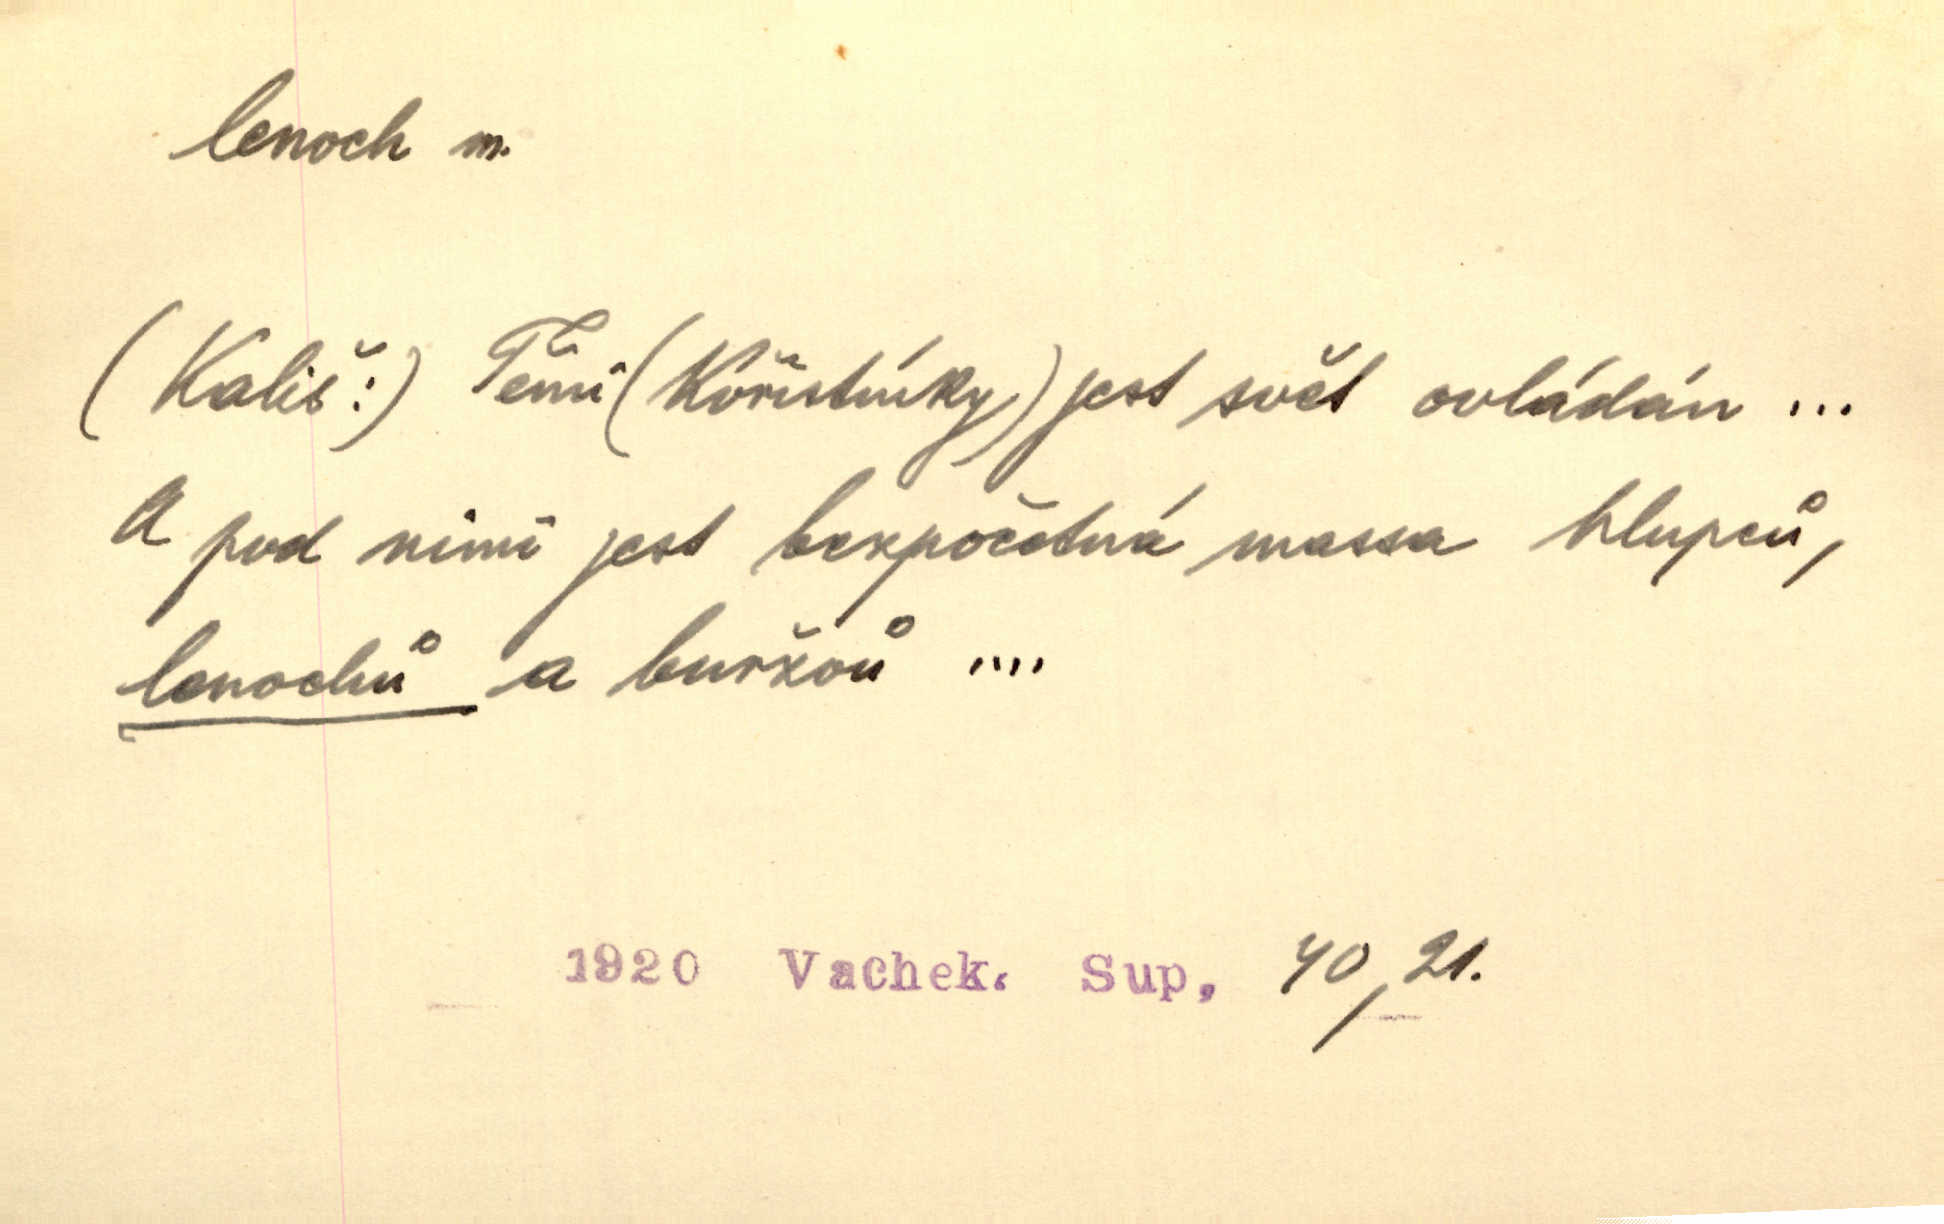 lenoch m.
(Kališ:) Těmi (Kořistníky) jest svět ovládán ...
A pod nimi jest bezpočetná massa hlupců,
lenochů a buržoů ....
1920 Vachek. Sup, 40,21.